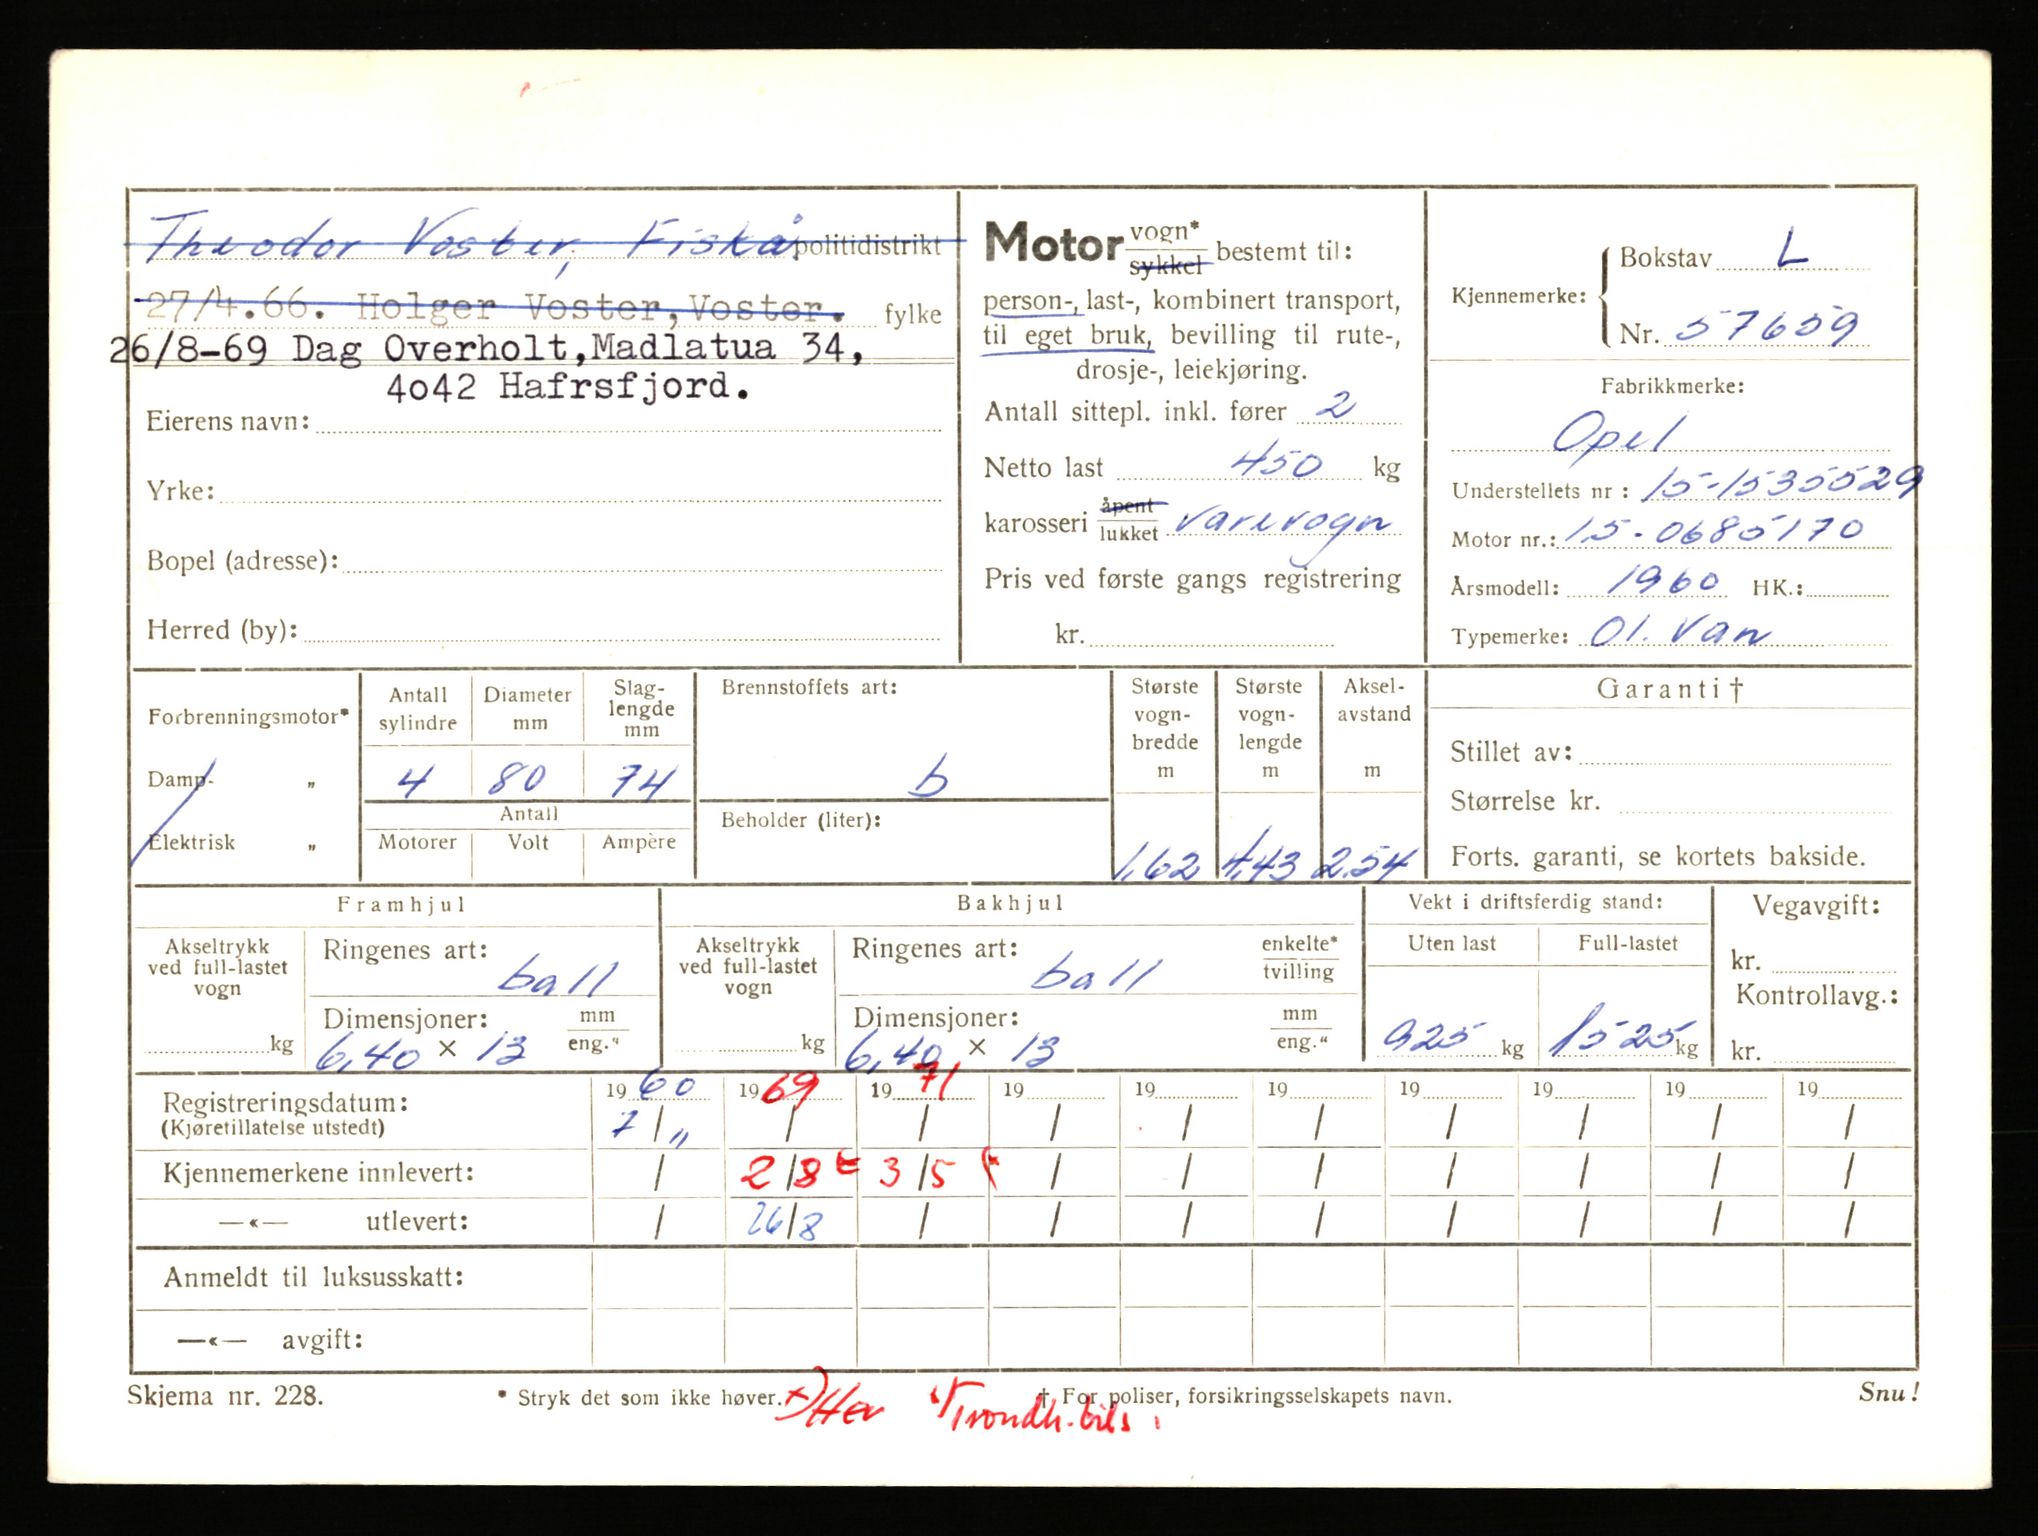 Theodor Voster, Fiskå. politidistrikt
27/4.66. Holger Voster, Voster. fylke
26/8-69 Dag Overholt, Madlatua 34,
4o42 Hafrsfjord.
Eierens navn:
Yrke:
Bopel (adresse):
Herred (by):
Motor vogn* sykkel bestemt til:
person-, last-, kombinert transport,
til eget bruk, bevilling til rute-,
drosje-, leiekjøring.
Antall sittepl. inkl. fører 2
Netto last 450 kg
karosseri åpent lukket varevogn
Pris ved første gangs registrering
kr.
Kjennemerke: Bokstav L
Nr. 57659
Fabrikkmerke:
Opel
Understellets nr : 15-1535529
Motor nr.: 15-0685170
Årsmodell: 1960 HK.:
Typemerke: Ol. Van
Forbrenningsmotor*
Damp- "
Elektrisk "
Antall sylindre Diameter mm Slaglengde mm
4 80 74
Antall
Motorer Volt Ampère
Brennstoffets art:
b
Beholder (liter):
Største vognbredde m Største vognlengde m Akselavstand m
1,62 4,43 2.54
Garanti †
Stillet av:
Størrelse kr.
Forts. garanti, se kortets bakside.
Framhjul
Akseltrykk ved full-lastet vogn
kg
Ringenes art:
ball
Dimensjoner: mm eng."
6,40 × 13
Bakhjul
Akseltrykk ved full-lastet vogn
kg
Ringenes art: enkelte* tvilling
ball
Dimensjoner: mm eng."
6,40 × 13
Vekt i driftsferdig stand:
Uten last Full-lastet
925 kg 1525 kg
Vegavgift:
kr.
Kontrollavg.:
kr.
Registreringsdatum: 19 60 19 69 19 71 19 19 19 19 19 19 19
(Kjøretillatelse utstedt) 7/11 / / / / / / / / /
Kjennemerkene innlevert: / 2/8 3/5 / / / / / / /
—«— utlevert: / 26/8 / / / / / / / /
Anmeldt til luksusskatt:
—«— avgift:
Skjema nr. 228.
* Stryk det som ikke høver.
† For poliser, forsikringsselskapets navn.
Snu!
x) Hev Trondh.bils.